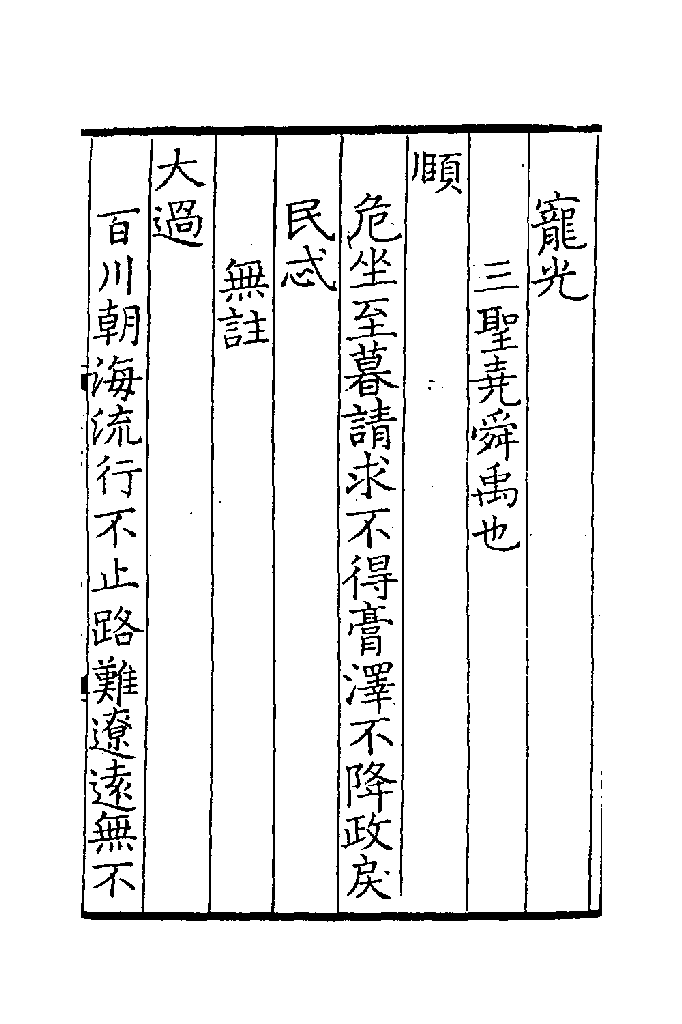 寵光
三聖堯舜禹也
頤
危坐至暮請求不得膏澤不降政戾
民忒
無註
大過
百川朝海流行不止路難遼遠無不